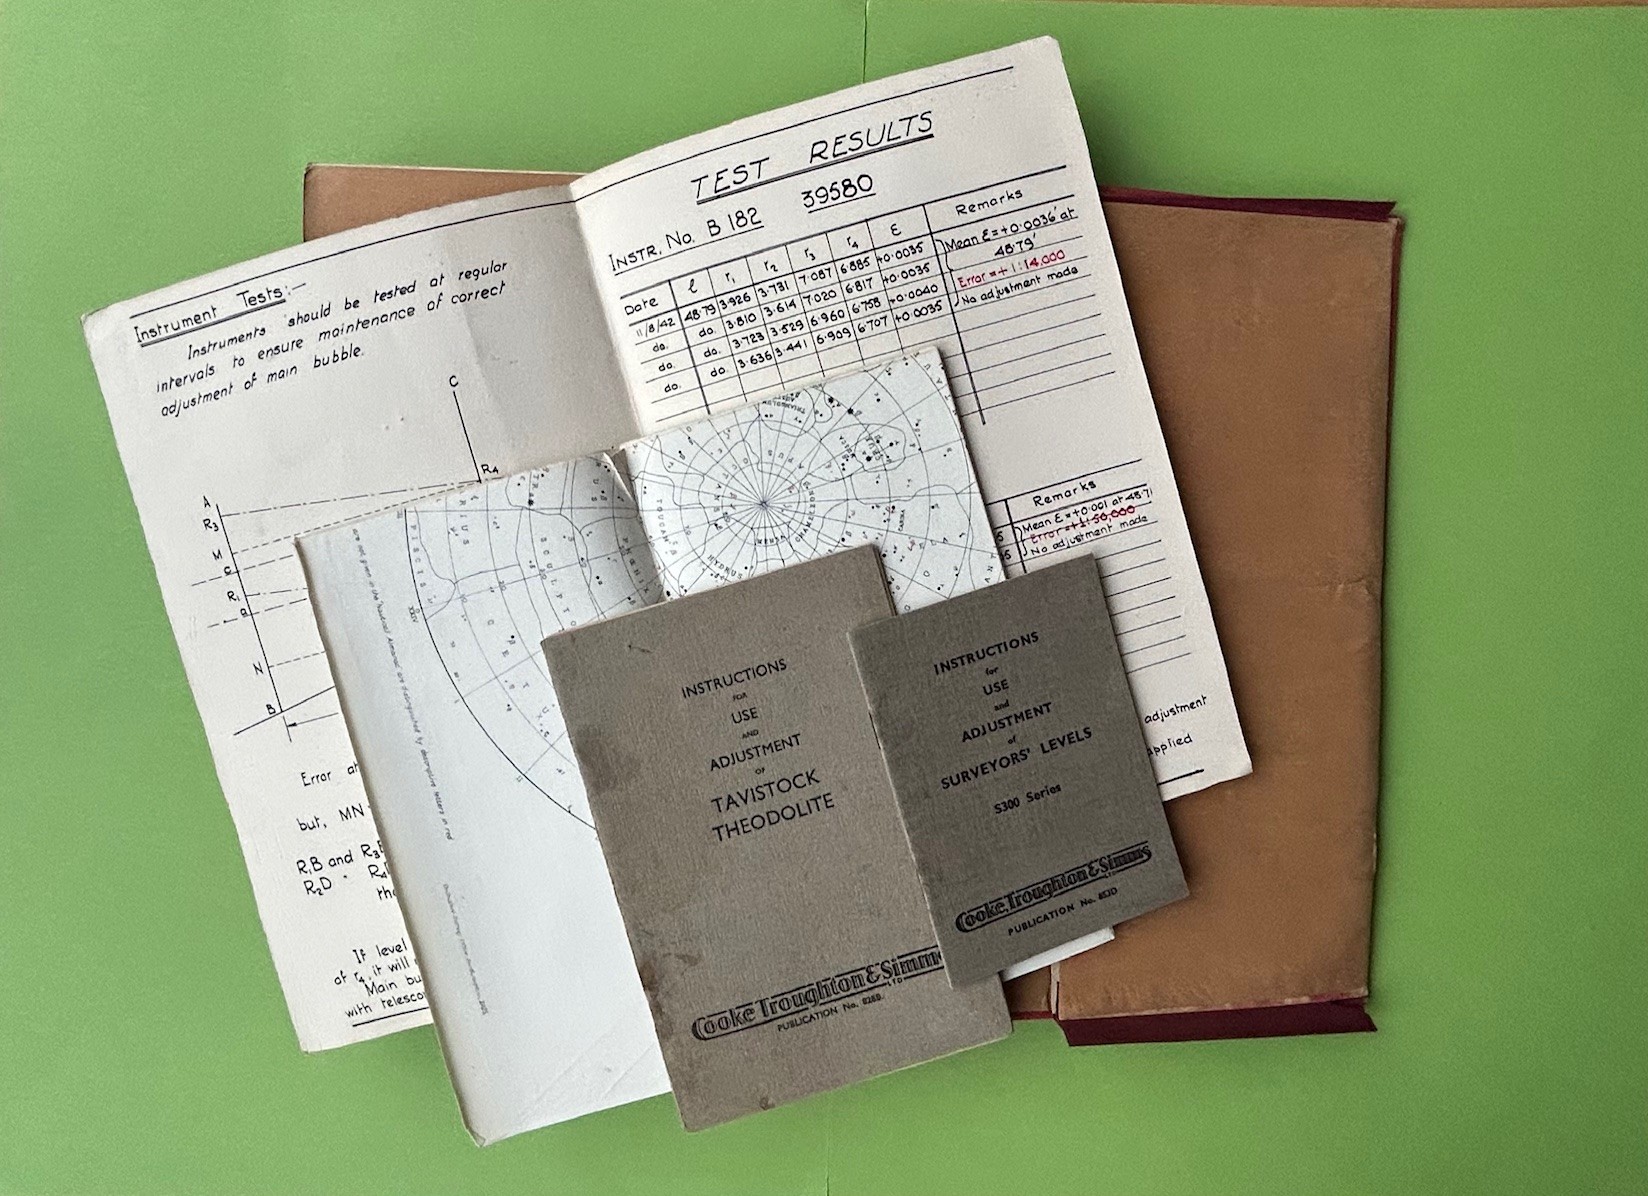 Instrument Tests:-
Instruments should be tested at regular
intervals to ensure maintenance of correct
adjustment of main bubble.
C
R4
A
R3
M
R1
N
B
Error
but, MN
R1B and R3
R2D
If level
of r4, it will
Main bu
with telesco
TEST RESULTS
INSTR. No. B 182 39580
Date l r1 r2 r3 r4 Ɛ Remarks
11/8/42 48.79 3.926 3.731 7.087 6.885 +0.0035 Mean Ɛ=+0.0036' at
do. do. 3.810 3.614 7.020 6.817 +0.0035 48.79'
do. do. 3.723 3.529 6.960 6.758 +0.0040 Error=+1:14,000
do. do. 3.636 3.441 6.909 6.707 +0.0035 No adjustment made
Remarks
Mean Ɛ=+0.001 at 48.71
Error=+1:50,000
No adjustment made
adjustment
applied
PISCIS
SCULPTO
PHŒNIX
TOUCAN
HYDRUS
MENSA
CHAMÆLEON
APUS
OCTANS
CARINA
are not given in the Nautical Almanac are distinguished by descriptive letters in red
INSTRUCTIONS
FOR
USE
AND
ADJUSTMENT
OF
TAVISTOCK
THEODOLITE
Cooke Troughton & Simms
LTD
PUBLICATION No.
INSTRUCTIONS
for
USE
and
ADJUSTMENT
of
SURVEYORS' LEVELS
S300 Series
Cooke, Troughton & Simms
LTD
PUBLICATION No. 853D